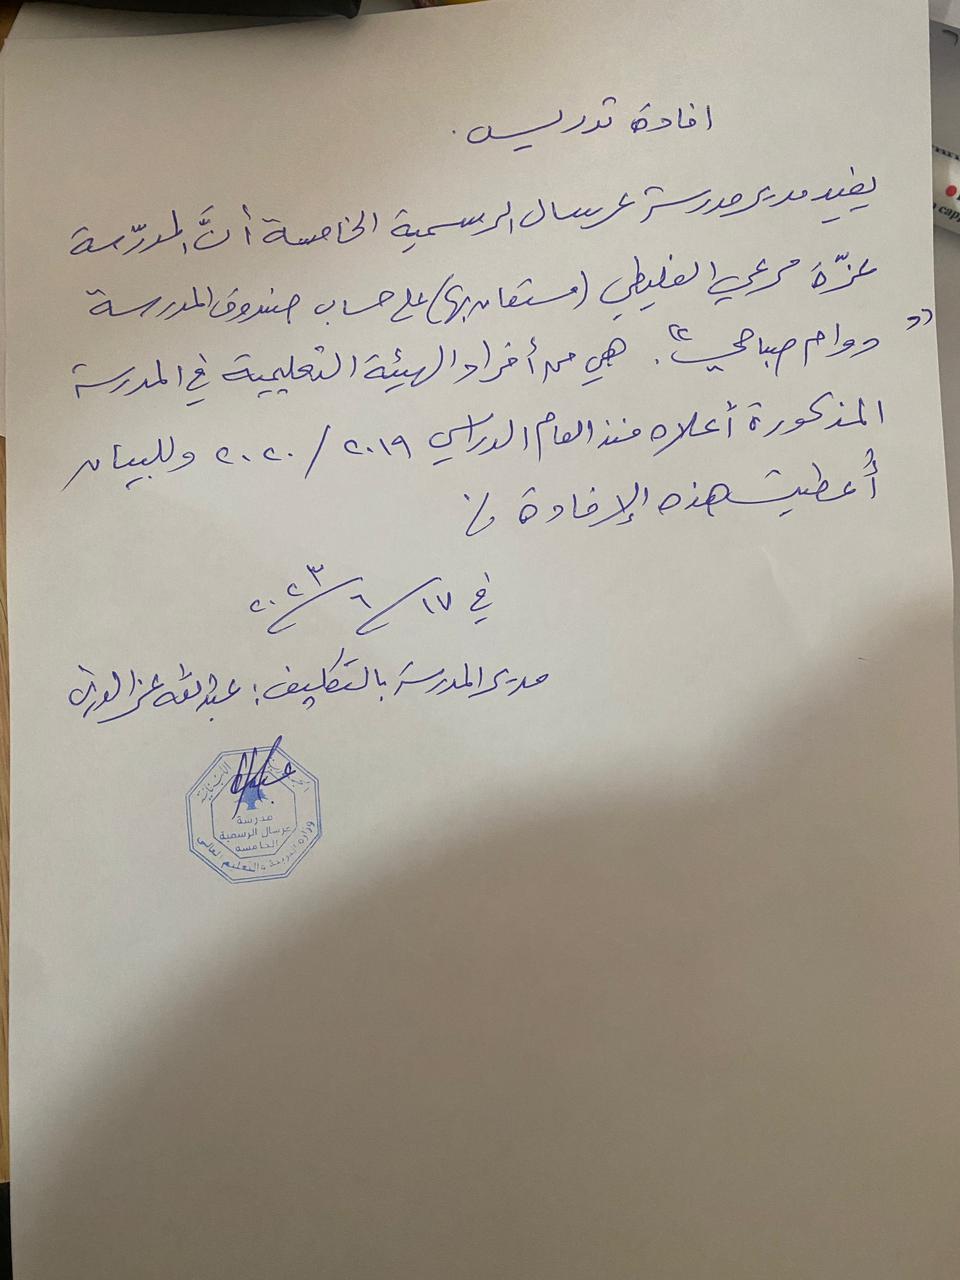 افادة تدريس.
يفيد مدير مدرسة عرسال الرسمية الخامسة أنَّ المدرّسة
عزّة مرعي الفليطي (مستعان بها) على حساب صندوق المدرسة
"دوام صباحي". هي من أفراد الهيئة التعليمية في المدرسة
المذكورة أعلاه منذ العام الدراسي ٢٠١٩/٢٠٢٠ وللبيان
أُعطيت هذه الإفادة
في ١٧/٦/٢٠٢٣
مدير المدرسة بالتكليف: عبدالله عز الدين
اللبنانية
مدرسة
عرسال الرسمية
الخامسة
وزارة التربية والتعليم العالي